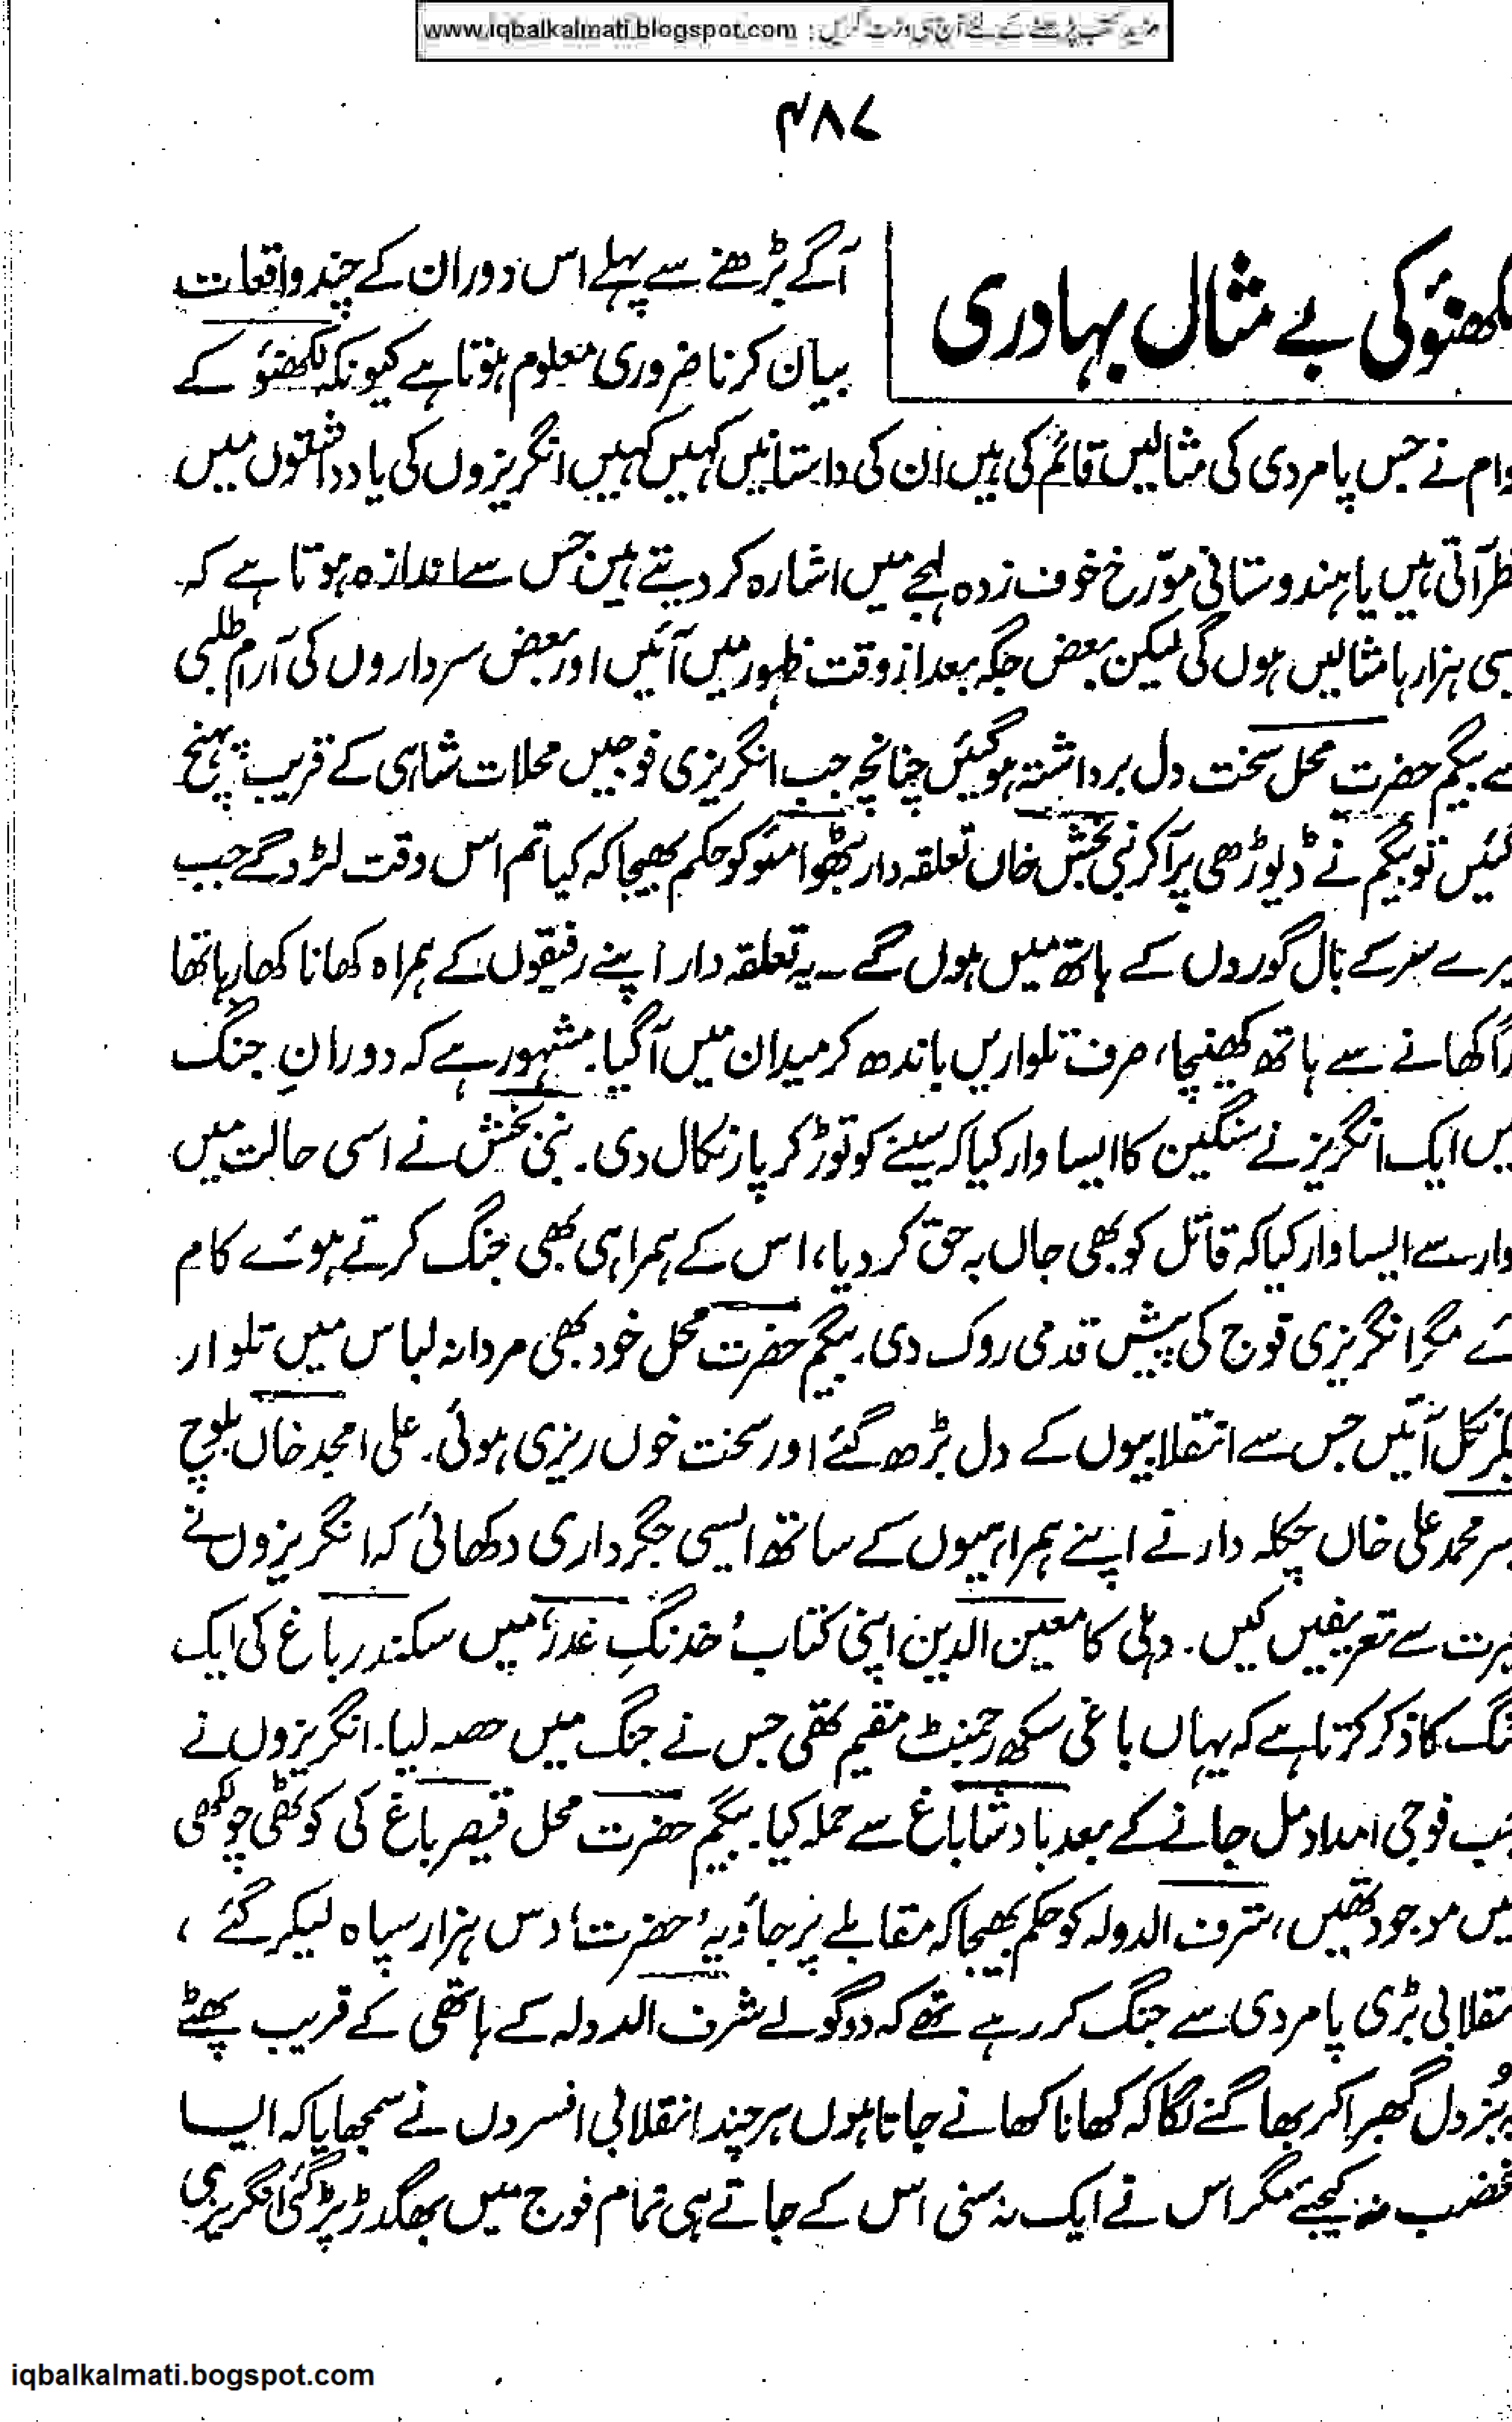 مزید کتب پڑھنے کے لئے آج ہی وزٹ کریں : www.iqbalkalmati.blogspot.com
۴۸۷
لکھنؤ کی بے مثال بہادری
آگے بڑھنے سے پہلے اس دوران کے چند واقعات
بیان کرنا ضروری معلوم ہوتا ہے کیونکہ لکھنؤ کے
وام نے جس پامردی کی مثالیں قائم کی ہیں ان کی داستانیں کہیں کہیں انگریزوں کی یادداشتوں میں
ظر آتی ہیں یا ہندوستانی مورّخ خوف زدہ لہجے میں اشارہ کر دیتے ہیں جس سے اندازہ ہوتا ہے کہ
سی ہزارہا مثالیں ہوں گی لیکن بعض جگہ بعد از وقت ظہور میں آئیں اور بعض سرداروں کی آرام طلبی
سے بیگم حضرت محل سخت دل برداشتہ ہوگئیں چنانچہ جب انگریزی فوجیں محلات شاہی کے قریب پہنچ
گئیں تو بیگم نے ڈیوڑھی پر آکر نبی بخش خاں تعلقہ دار بٹھوامئو کو حکم بھیجا کہ کیا تم اس وقت لڑوگے جب
یرے سر کے بال گوروں کے ہاتھ میں ہوں گے ۔ یہ تعلقہ دار اپنے رفیقوں کے ہمراہ کھانا کھا رہا تھا
راً کھانے سے ہاتھ کھینچا، صرف تلواریں باندھ کر میدان میں آگیا۔ مشہور ہے کہ دورانِ جنگ
یں ایک انگریز نے سنگین کا ایسا وار کیا کہ سینے کو توڑ کر پار نکال دی۔ نبی بخش نے اسی حالت میں
وار سے ایسا وار کیا کہ قاتل کو بھی جاں بہ حق کر دیا، اس کے ہمراہی بھی جنگ کرتے ہوئے کام
ئے مگر انگریزی فوج کی پیش قدمی روک دی۔ بیگم حضرت محل خود بھی مردانہ لباس میں تلوار
یکر نکل آئیں جس سے انقلابیوں کے دل بڑھ گئے اور سخت خوں ریزی ہوئی۔ علی امجد خاں بلوچ
سر محمد علی خاں چکلہ دار نے اپنے ہمراہیوں کے ساتھ ایسی جگرداری دکھائی کہ انگریزوں نے
یرت سے تعریفیں کیں۔ دہلی کا معین الدین اپنی کتاب ’خدنگِ غدر‘ میں سکندر باغ کی ایک
نگ کا ذکر کرتا ہے کہ یہاں باغی سکھ رجمنٹ مقیم تھی جس نے جنگ میں حصہ لیا۔ انگریزوں نے
جب فوجی امداد مل جانے کے بعد بادشا باغ سے حملہ کیا۔ بیگم حضرت محل قیصر باغ کی کوٹھی چولکھی
یں موجود تھیں، شرف الدولہ کو حکم بھیجا کہ مقابلے پر جاؤ یہ ’حضرت‘ دس ہزار سپاہ لیکر گئے ،
نقلابی بڑی پامردی سے جنگ کر رہے تھے کہ دو گولے شرف الدولہ کے ہاتھی کے قریب پھٹے
بزدل گھبرا کر بھاگنے لگا کہ کھانا کھانے جاتا ہوں ہرچند انقلابی افسروں نے سمجھایا کہ ایسا
غضب نہ کیجئے مگر اس نے ایک نہ سنی اس کے جاتے ہی تمام فوج میں بھگدڑ پڑ گئی انگریزی
iqbalkalmati.bogspot.com